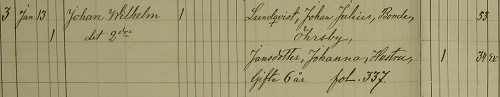 3 Jan 13 Johan Wilhelm 1 Lundqvist, Johan Julius, Bonde, 53
1 det 2dra Öhrsby,
Jansdotter, Johanna, Hustru, 1 34 ex.
Gifte 6 år fol. 337.